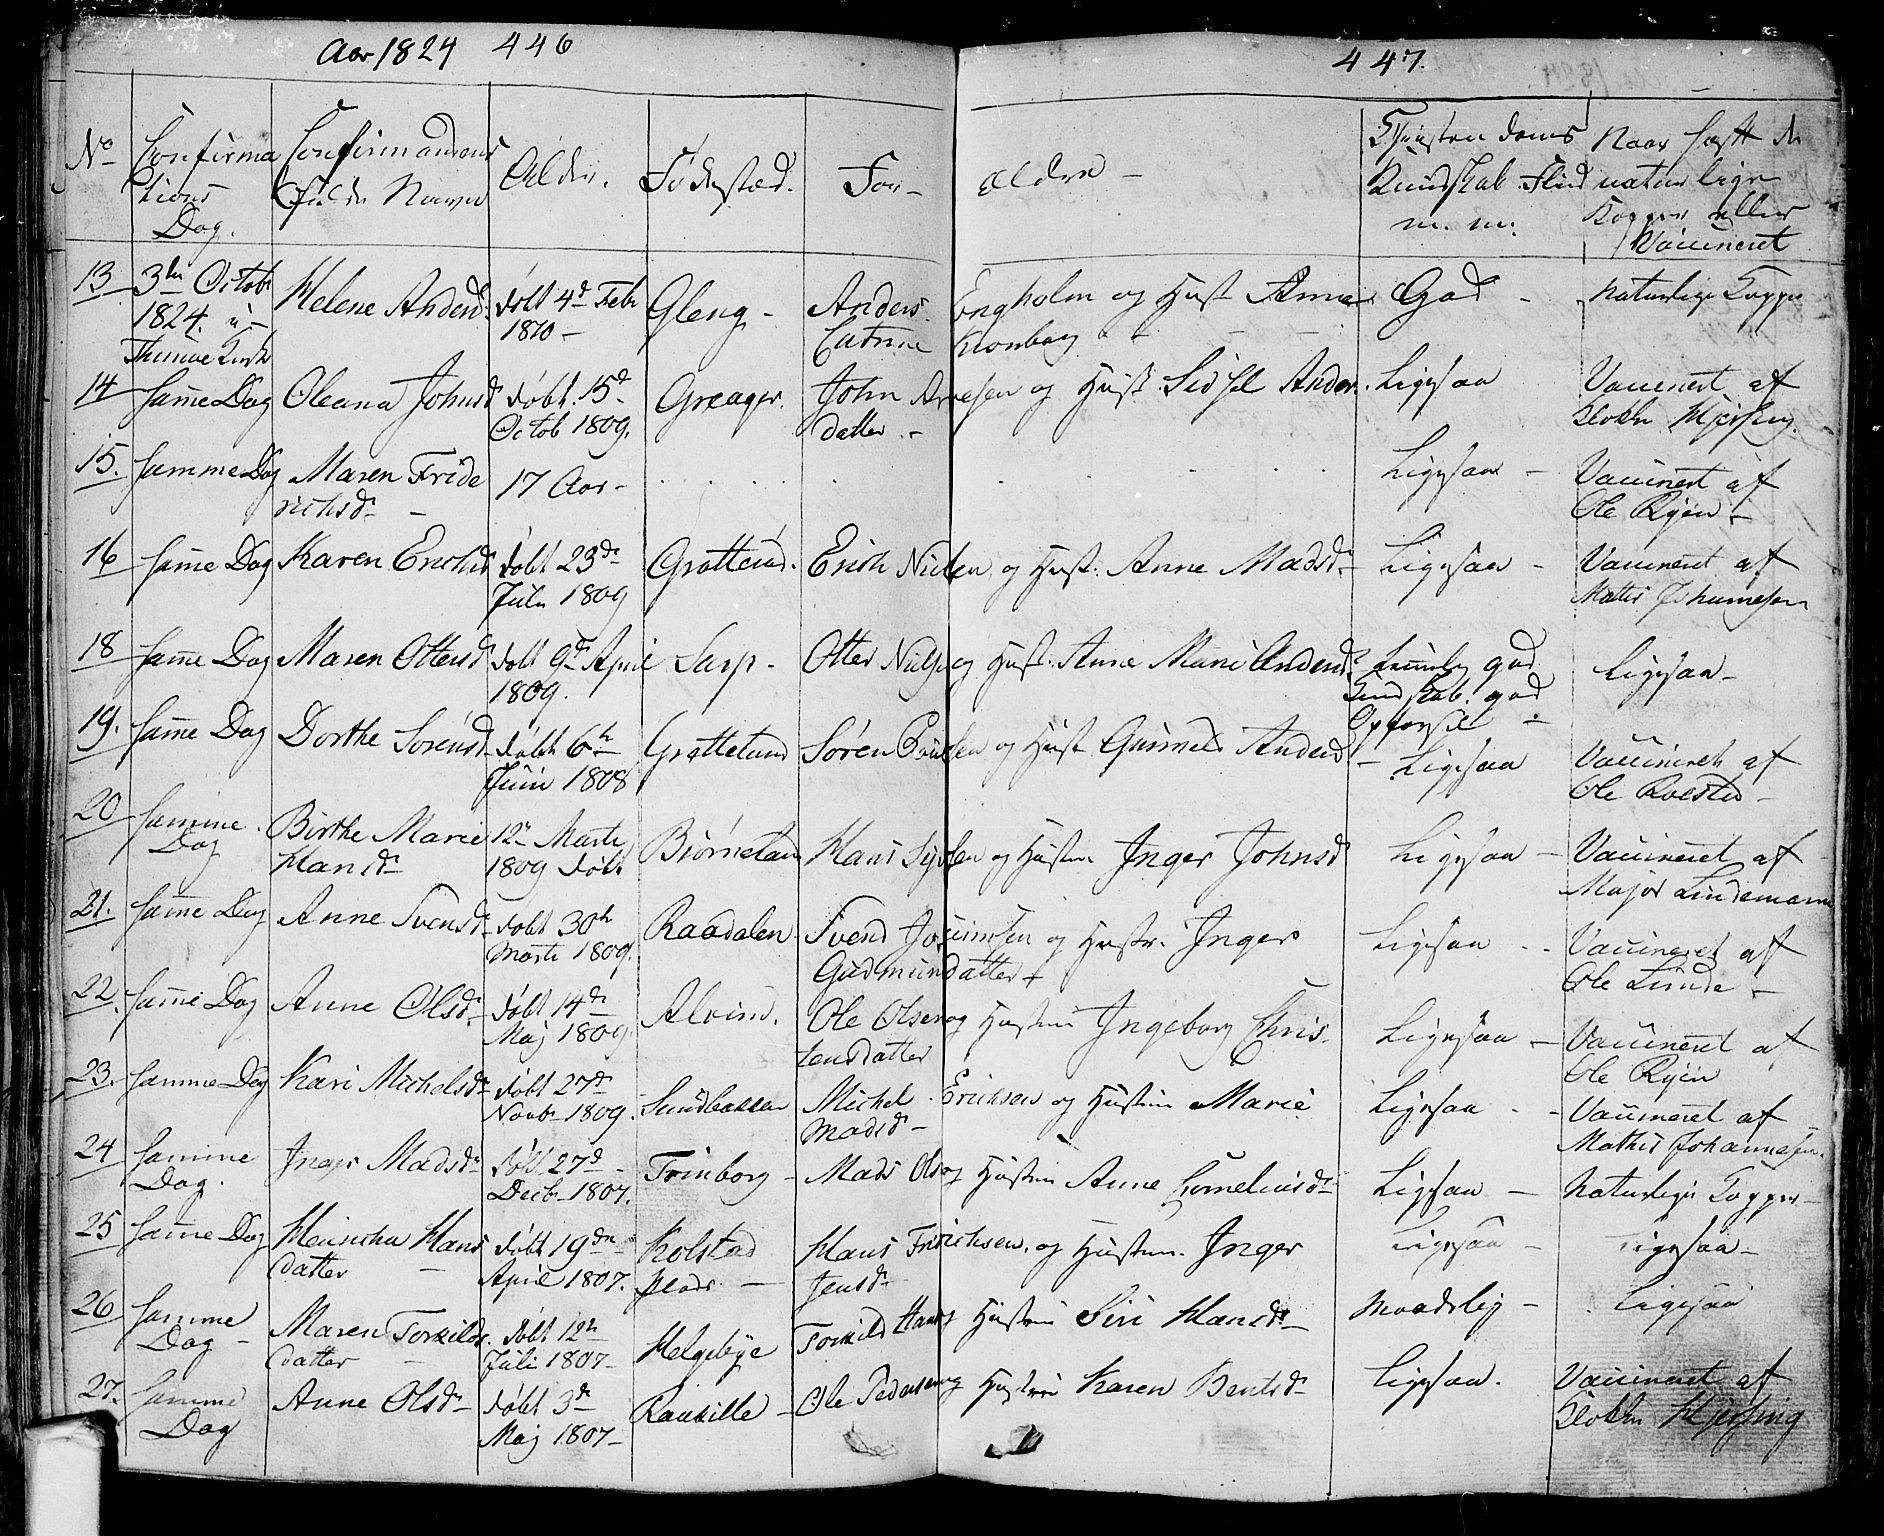 Aar 1824 446
447.
No Confirma tions Dag. Confirmandens Fulde Navn Alder. Fødested. For- ældre - Christendoms Kundskab Flid m. m. Naar hafft de naturlige Kopper eller Vaccineret
13 3die Octobr 1824. i Thunøe Kirke Helene Andersd. døbt 4de Febr 1810 - Gleng - Anders Engholm og Hust Anne Catrine Kronborg God - Naturlige Kopper
14 Samme Dag Oleana Johnsd døbt 15de Octob 1809. Greager. John Arnesen og Hust. Sidsel Anders datter. - Ligesaa Vaccinert af Klokker Hjersing.
15. Samme Dag Maren Fride richsd. - 17 Aar - Ligesaa - Vaccinert af Ole Ryen -
16 Samme Dag Karen Erichsd døbt 23de Juli 1809 Grottesund. Erich Nielsen og Hust. Anne Madsd. Ligesaa - Vaccineret af Mattis Johannesen
18 Samme Dag Maren Ottersd døbt 9de April 1809. Sarp - Otter Nielsen og Hust. Anne Marie Andersd. temmelig god Kundskab. god Opførsel - Ligesaa -
19. Samme Dag Dorthe Sørensd døbt 6te Junii 1808 Grottesund Søren Poulsen og Hust Gunnild Andersd - Ligesaa Vaccineret af Ole Rolstad -
20 Samme Dag Birthe Marie Hansd. 12te Marti 1809 døbt Biørneland Hans Syversen og Hustru Inger Johnsd Ligesaa - Vaccineret af Major Lindemann
21. Samme Dag Anne Svensd. døbt 30te Marti 1809. Raadalen Svend Joachimsen og Hustr. Inger Gudmundatter Ligesaa - Vaccineret af Ole Lunde -
22. Samme Dag Anne Olsd. døbt 14de Maj 1809. Alvim. Ole Olsen og Hustru Ingeborg Chris- tensdatter Ligesaa - Vaccineret af Ole Ryen
23. Samme Dag Kari Michelsd. døbt 27de Novbr 1809. Sundløkken Michel Erichsen og Hustru Marie Madsd - Ligesaa - Vaccineret af Mathis Johannesen.
24 Samme Dag. Inger Madsd. døbt 27de Decbr 1807. Trinborg - Mads Ols og Hustru Anne Corneliusd. Ligesaa - Naturlige Kopper -
25 Samme Dag Heinicha Hans datter - døbt 19de April 1807. Kolstad plads. - Hans Friderichsen og Hustru. Inger Jensd. Ligesaa - Ligesaa -
26 Samme Dag - Maren Torkilds. datter - døbt 12te Juli 1807 - Helgebye Torkild Hans og Hustru Siri Hansd. - Maadelig - Ligesaa
27. Samme Dag Anne Olsd. døbt 3de Maj 1807 - Raakille - Ole Pedersen og Hustru Karen Bentsd. Ligesaa. Vaccineret af Klokker Hjersing